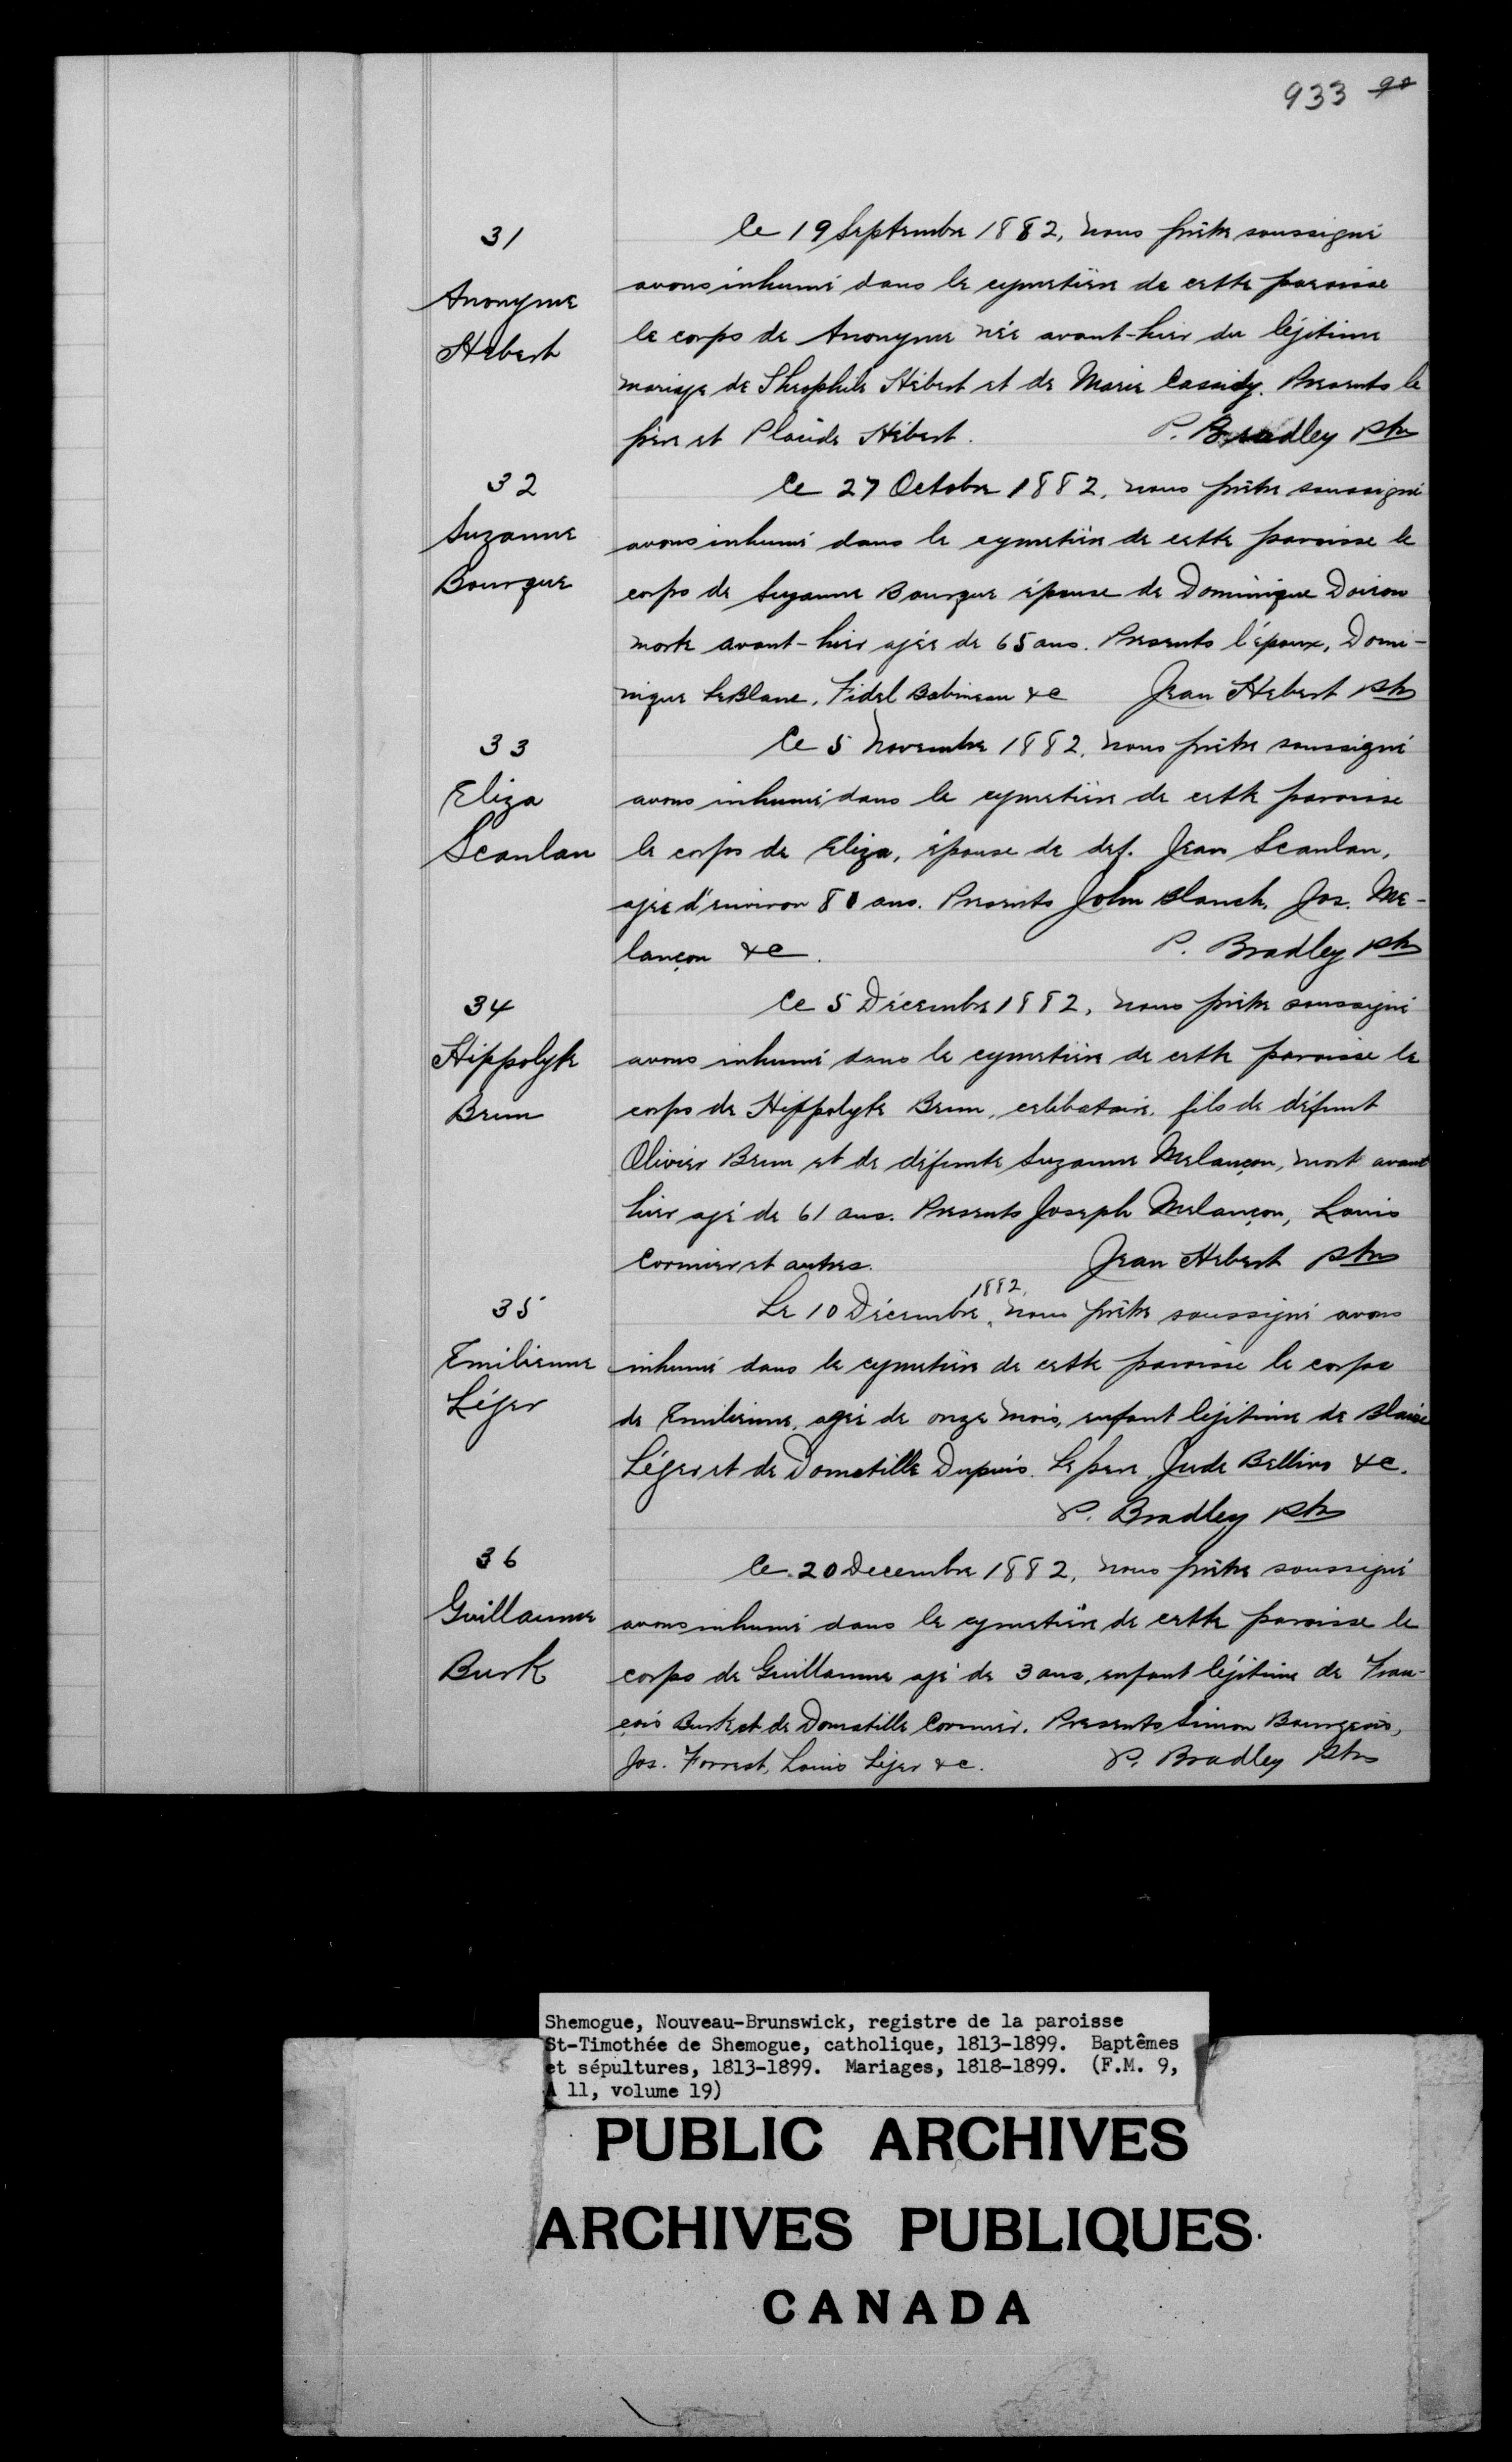 933 90
31
Anonyme
Hebert
Ce 19 Septembre 1882, nous prêtre soussigné
avons inhumé dans le cymetière de cette paroisse
le corps de Anonyme née avant-hier du léjitime
mariage de Theophile Hébert et de Marie Cassidy. Presents le
père et Placide Hébert. P. Bradley ptre
32
Suzanne
Bourque
Ce 27 Octobre 1882, nous prêtre soussigné
avons inhumé dans le cymetière de cette paroisse le
corps de Suzanne Bourque épouse de Dominique Doiron
morte avant-hier ajée de 65 ans. Presents l'époux, Domi-
nique LeBlanc, Fidel Babineau &c Jean Hebert ptre
33
Eliza
Scanlan
Ce 5 Novembre 1882, nous prêtre soussigné
avons inhumé dans le cymetière de cette paroisse
le corps de Eliza, épouse de def. Jean Scanlan,
ajée d'environ 80 ans. Presents John Blanch, Jos. Me-
lançon &c. P. Bradley ptre
34
Hippolyte
Brun
Ce 5 Décembre 1882, nous prêtre soussigné
avons inhumé dans le cymetière de cette paroisse le
corps de Hippolyte Brun, celibataire, fils de défunt
Olivier Brun et de défunte Suzanne Melançon, mort avant
hier ajé de 61 ans. Presents Joseph Melançon, Louis
Cormier et autres. Jean Hebert ptre
35
Emilienne
Léger
Le 10 Décembre 1882, nous prêtre soussigné avons
inhumé dans le cymetière de cette paroisse le corps
de Emilienne, agée de onze mois, enfant léjitime de Blaise
Léger et de Domatille Dupuis. Le père, Jude Bellivo &c.
P. Bradley ptre
36
Guillaume
Burk
Ce 20 Decembre 1882, nous prêtre soussigné
avons inhumé dans le cymetière de cette paroisse le
corps de Guillaume ajé de 3 ans, enfant léjitime de Fran-
çois Burk et de Domatille Cormier. Presents Simon Bourgeois,
Jos. Forrest, Louis Léjer &c. P. Bradley ptre
Shemogue, Nouveau-Brunswick, registre de la paroisse
St-Timothée de Shemogue, catholique, 1813-1899. Baptêmes
et sépultures, 1813-1899. Mariages, 1818-1899. (F.M. 9,
A 11, volume 19)
PUBLIC ARCHIVES
ARCHIVES PUBLIQUES
CANADA